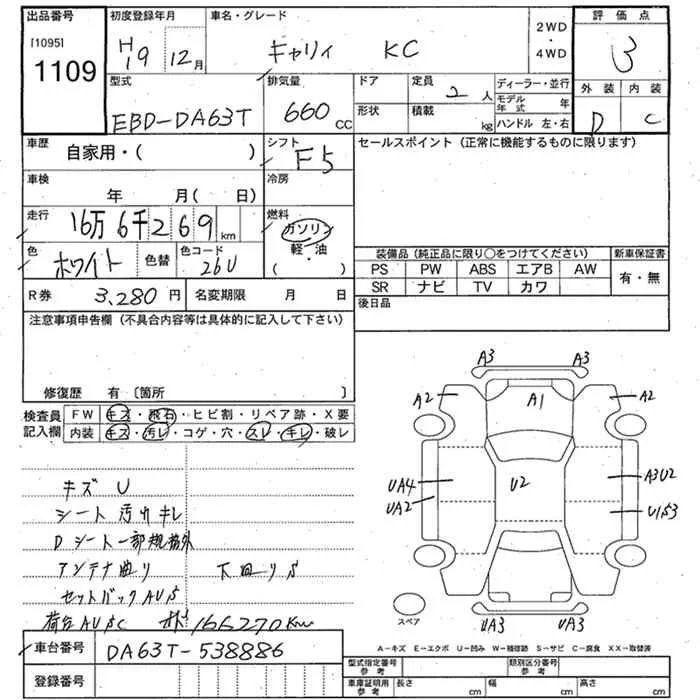 出品番号 初度登録年月 車名・グレード 2WD・4WD 評価点
[1095] 1109
H19 12月 キャリィ KC 3
型式 排気量 ドア 定員 2人 ディーラー・並行 外装 内装
EBD-DA63T 660cc 形状 積載 kg モデル年式 年 D C
ハンドル 左・右
車歴 自家用・( ) シフト F5 セールスポイント(正常に機能するものに限ります)
車検 年 月( 日) 冷房
走行 16万6千269km 燃料 ガソリン 軽・油 ( )
色 ホワイト 色替 色コード 26U
装備品(純正品に限り〇をつけてください) 新車保証書
PS PW ABS エアB AW 有・無
SR ナビ TV カワ
R券 3,280円 名変期限 月 日 後日品
注意事項申告欄(不具合内容等は具体的に記入して下さい)
修復歴 有〔箇所 〕
検査員記入欄 FW キズ・飛石・ヒビ割・リペア跡・X要
内装 キズ・汚レ・コゲ・穴・スレ・キレ・破レ
キズ U
シート 汚れ キレ
Dシート一部規格外
アンテナ曲り 下回りS
セットバックAUS
荷台AUSC 166270km
A3 A3
A2 A1 A2
UA4 U2 A3U2
UA2 U1S3
スペア UA3 UA3
A-キズ E-エクボ U-凹み W-補修跡 S-サビ C-腐食 XX-取替済
車台番号 DA63T-538886
型式指定番号 参考 類別区分番号 参考
登録番号
車庫証明用 参考 長さ cm 幅 cm 高さ cm